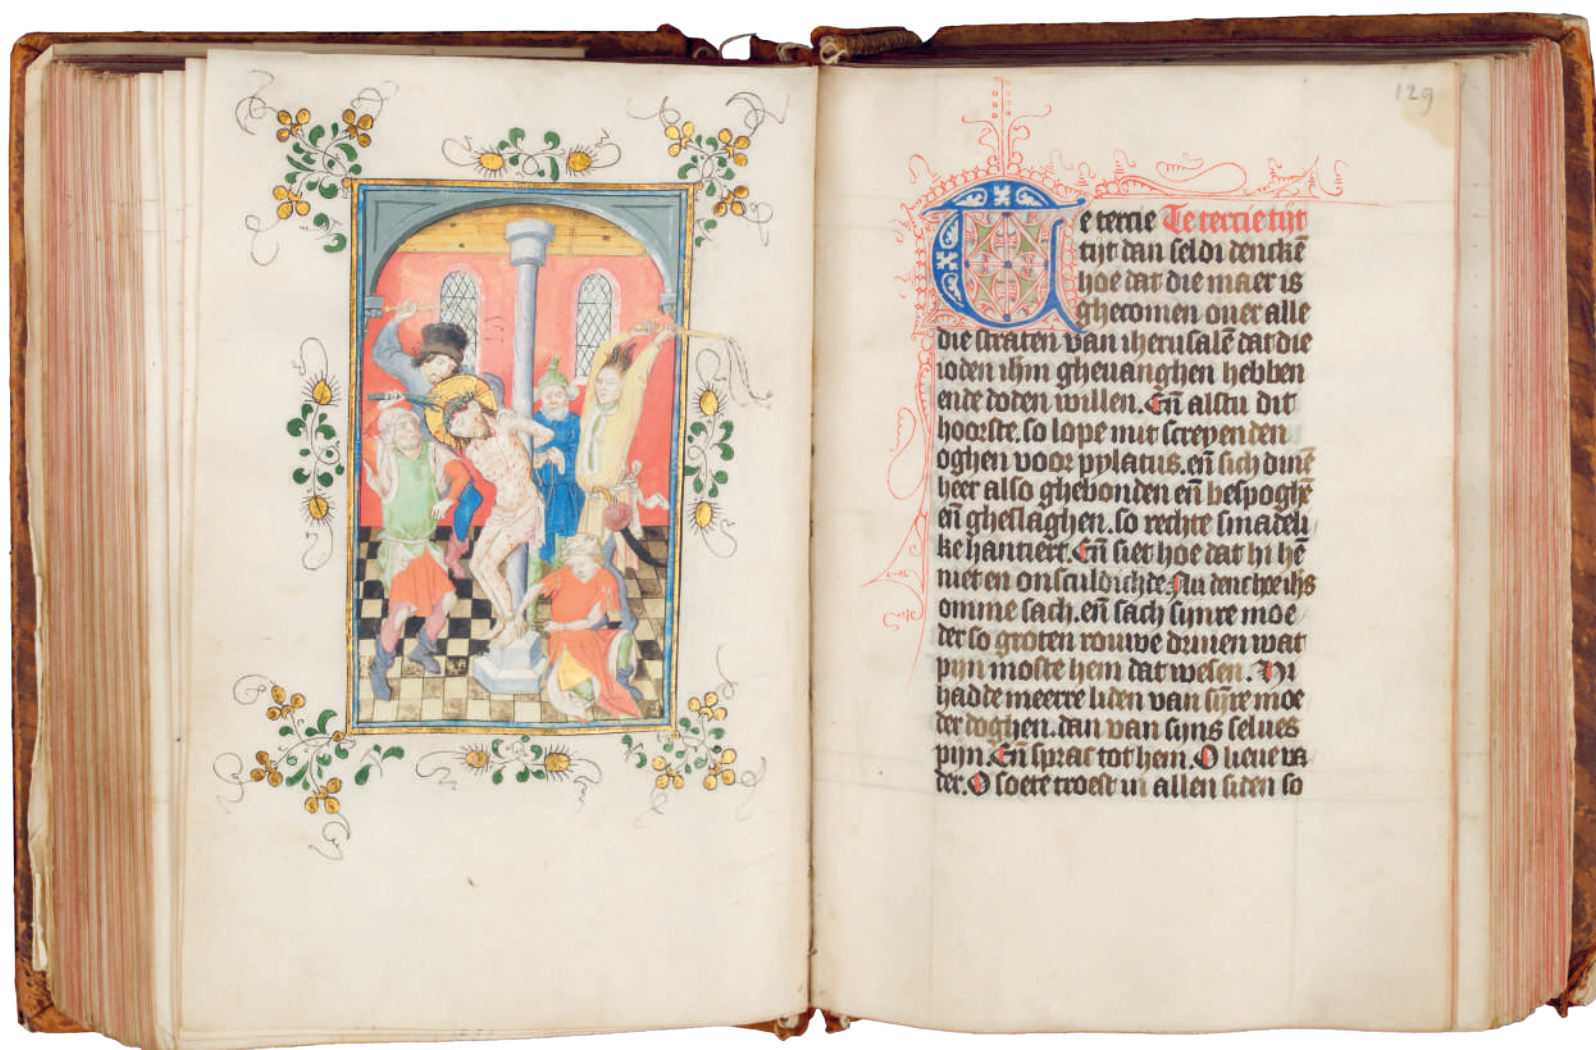 129
Te tercie Te tercie tijt
tijt dan seldi dencke̅
hoe dat die maer is
ghecomen ouer alle
die straten van iherusale̅ dat die
ioden ihm gheuanghen hebben
ende doden willen. En̅ alstu dit
hoorste. so lope mit screyenden
oghen voor pylatus. en̅ sich dine̅
heer also ghebonden en̅ bespoghe̅
en̅ gheslaghen. so rechte smadeli
ke hantiert. En̅ siet hoe dat hi he̅
niet en onsculdichde. Nu denct hoe ihs
omme sach. en̅ sach sijnre moe
der so groten rouwe driuen wat
pijn moste hem dat wesen. Hi
hadde meerre liden van sijre moe
der doghen. dan van sijns selues
pijn. En̅ sprac tot hem. O lieue va
der. O soete troest in allen liden so